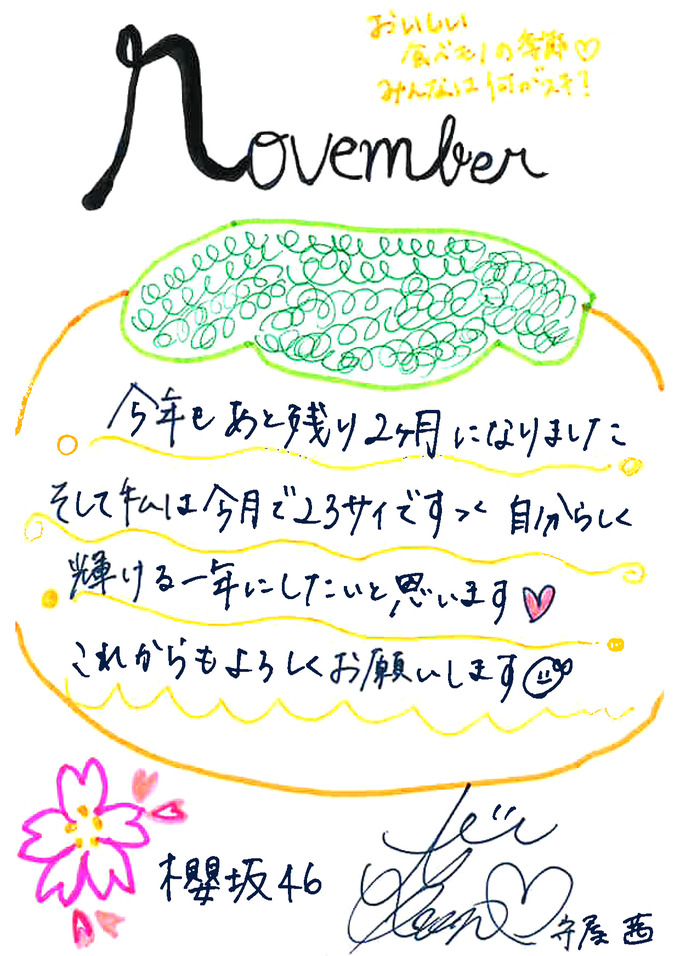 November
おいしい
食べモノの季節♡
みんなは何がスキ？
今年もあと残り2ヶ月になりました
そして私は今月で23サイですっ、自分らしく
輝ける一年にしたいと思います♥
これからもよろしくお願いします☺
櫻坂46
守屋 茜